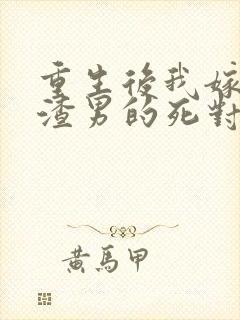 重生後我嫁
渣男的死對
黃馬甲